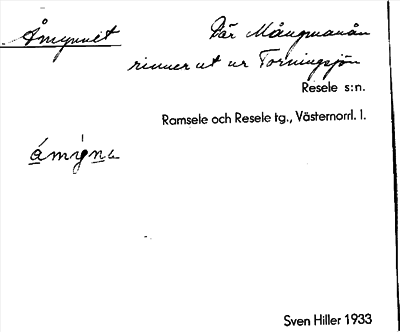 Åmynnet
Där Mångmanån
rinner ut ur Torningsjön
Resele s:n.
Ramsele och Resele tg., Västernorrl. l.
ámy̆na
Sven Hiller 1933